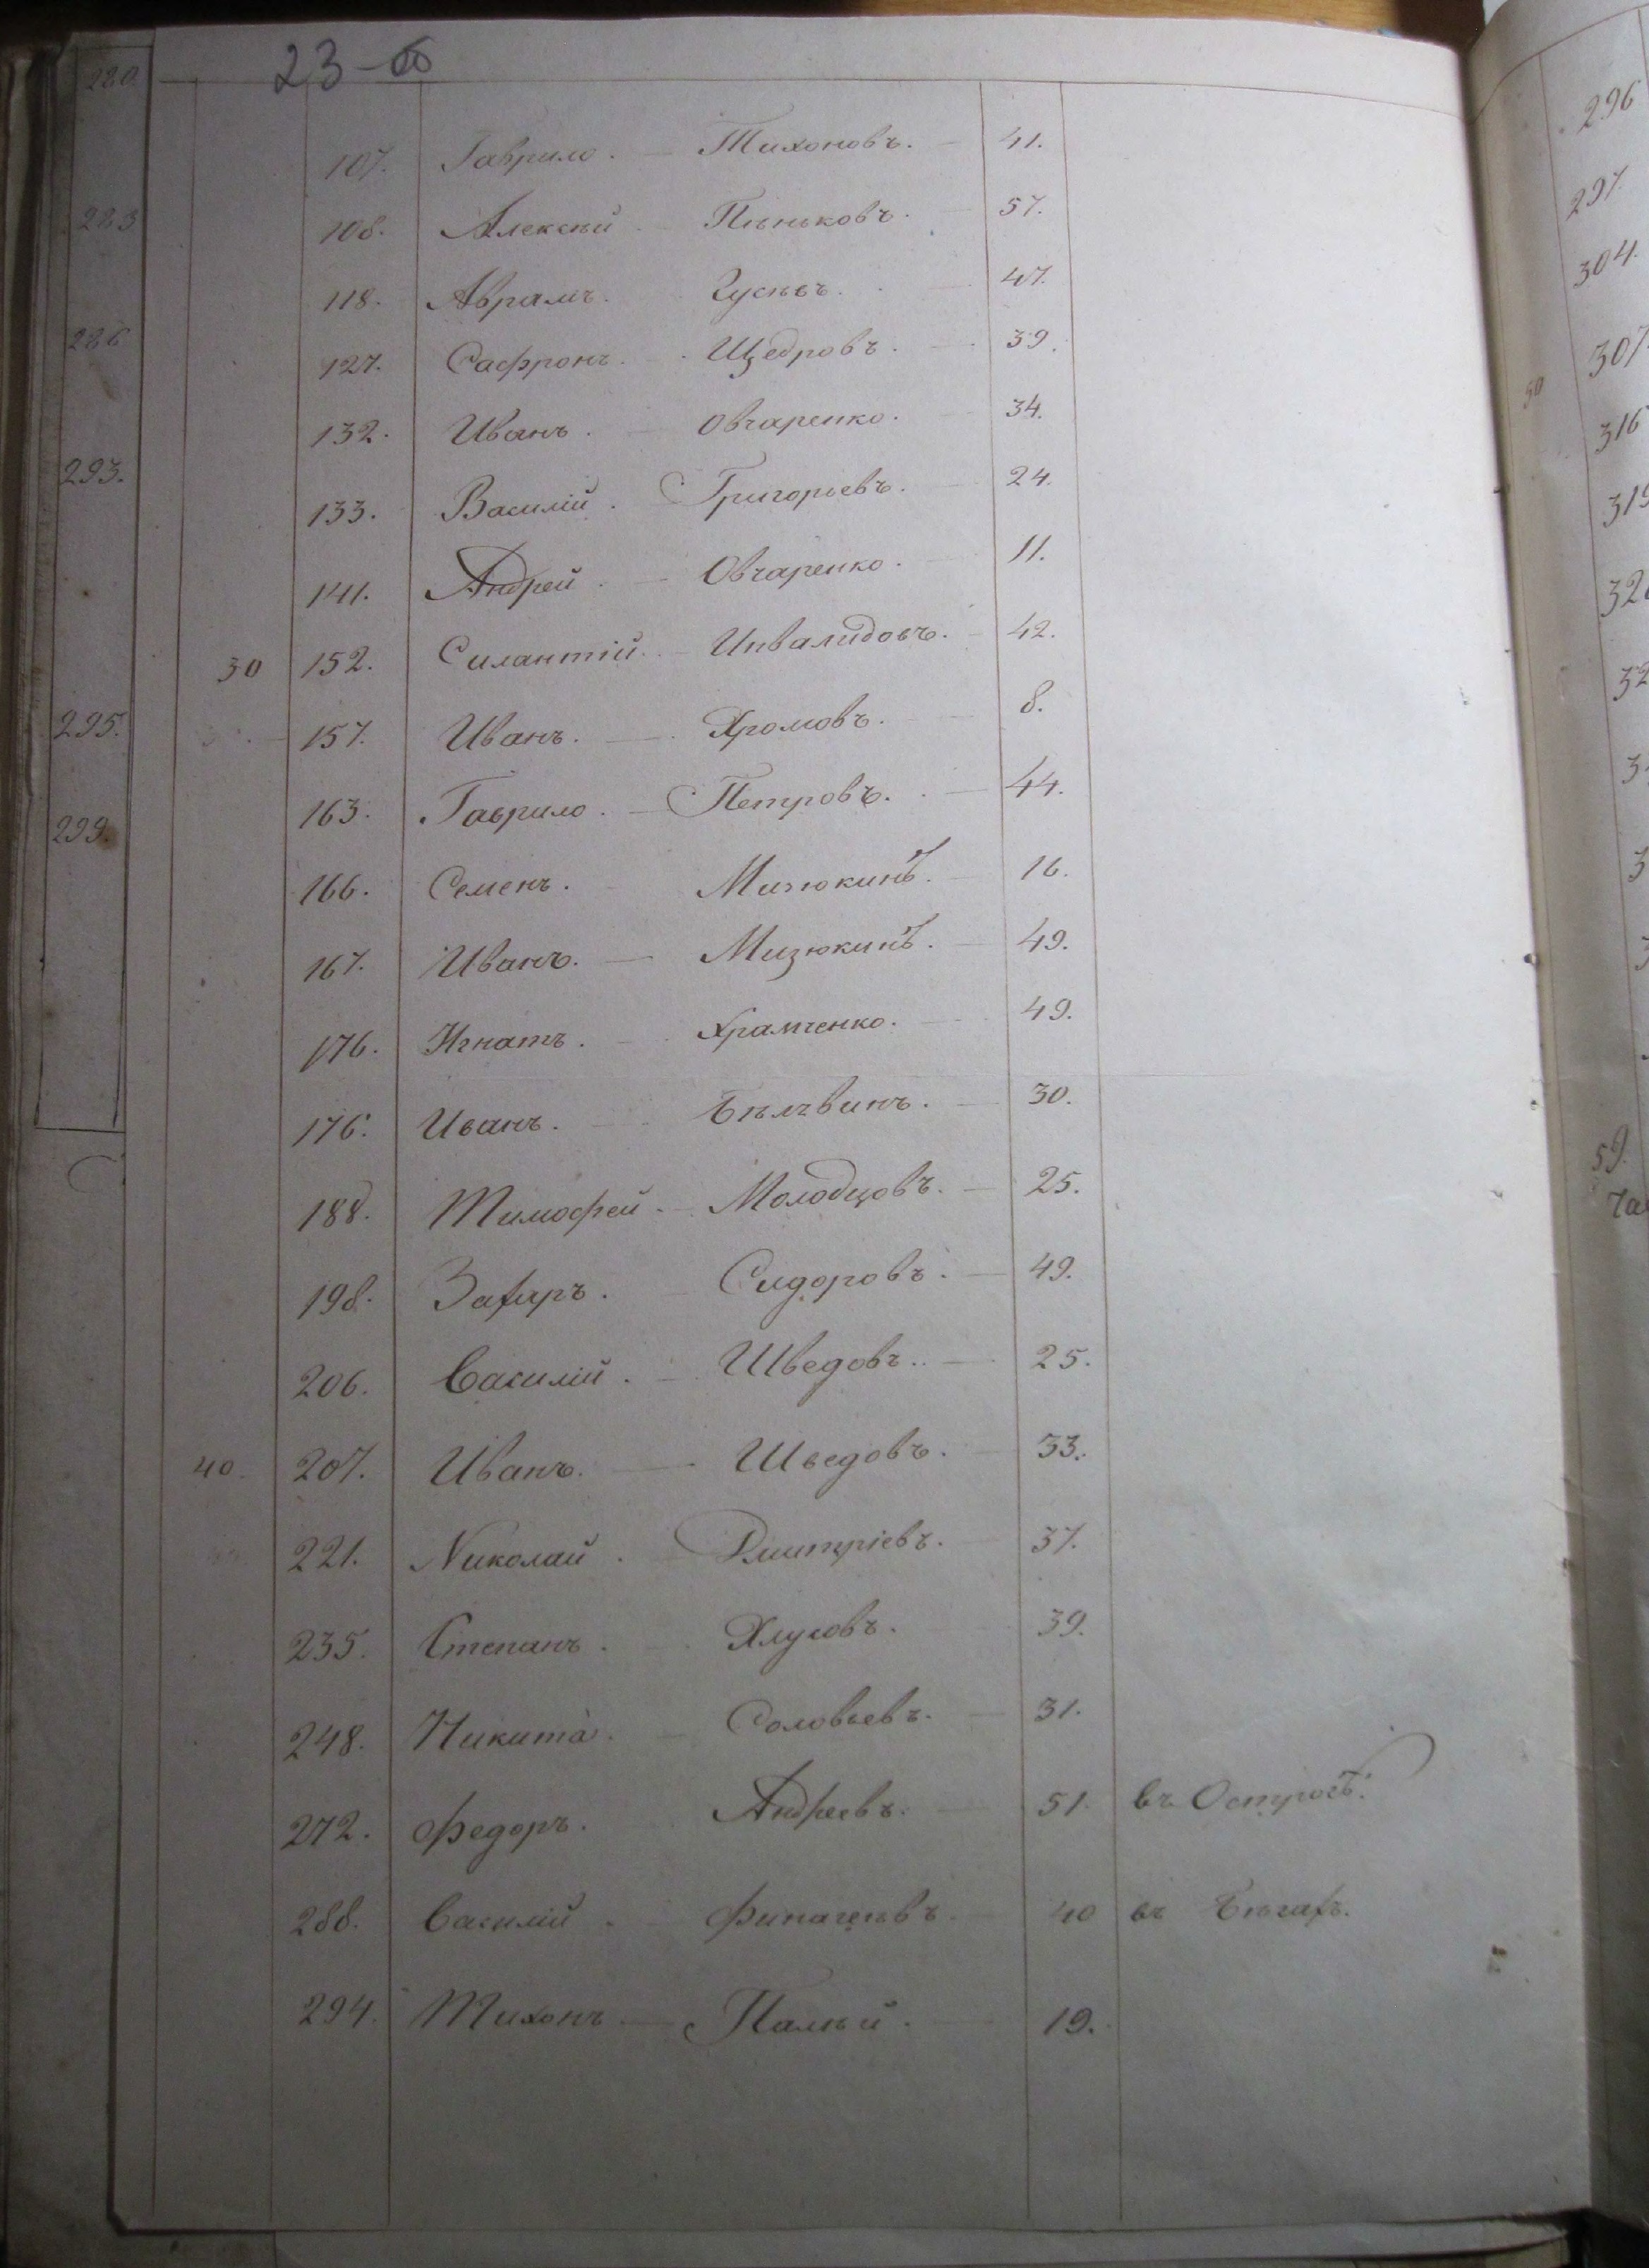 23-об
107. Гаврило. — Тихоновъ. — 41.
108. Алексѣй — Пѣньковъ. — 57.
118. Аврамъ. Гусѣвъ. — 47.
127. Сафронъ. — Щедровъ. — 39.
132. Иванъ. — Овчаренко. — 34.
133. Василій. Григорьевъ. — 24.
141. Андрей. — Овчаренко. — 11.
30 152. Силантій. — Инвалидовъ. — 42.
157. Иванъ. — Хромовъ. — 8.
163. Гаврило. — Петровъ. — 44.
166. Семенъ. Мизюкинъ. — 16.
167. Иванъ. — Мизюкинъ. — 49.
176. Игнатъ. — Храмченко. — 49.
176. Иванъ. — 30.
188. Тимофей. — Молодцовъ. — 25.
198. Захаръ. — Сидоровъ. — 49.
206. Василій. — Шведовъ. — 25.
40. 207. Иванъ. — Шведовъ. — 33.
221. Николай. Дмитріевъ. — 37.
235. Степанъ. — Хлусовъ. 39.
248. Никита. — Соловьевъ. — 31.
272. Федоръ. Андреевъ. — 51. въ Острогѣ.
288. Василій. — 40 въ Бѣгахъ.
294. Тихонъ — Палѣй. — 19.
280
283
286
293.
295.
299.
296
297.
304.
307.
50
316
59.